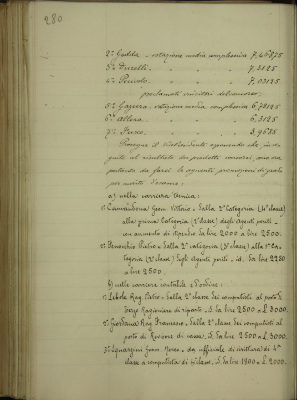 280
2º Gedda - votazione media complessiva 7,46875
3º Durelli - " " " 7,3125
4º Peisolo - " " " 7,03125
proclamati vincitori del concorso;
5º Gazzera - votazione media complessiva 6,78125
6º Allera - " " " 6,3125
7º " " " 5,9635
Prosegue il Presidente esponendo che in se-
guito al risultato dei predetti concorsi sono
da farsi le seguenti promozioni di posto
per merito d'esame:
a) nella carriera tecnica:
1º Vittorio - dalla 2ª Categoria (4ª classe)
alla prima Categoria (2ª classe) degli Agenti
con aumento di stipendio da lire 2000 a lire 2500.
2º Pietro - dalla 2ª categoria (3ª classe) alla 1ª Ca-
tegoria (2ª classe) degli Agenti - id. da lire 2250
a lire 2500.
b) nelle carriere contabile e d'ordine:
1º Rag. Pietro - dalla 2ª classe dei computisti al posto di
terzo Ragioniere di riparto - da lire 2500 a £ 3000.
2º Giordana Rag. Francesco - dalla 2ª classe dei computisti al
posto di Ragioniere di cassa, da lire 2500 a £ 3000.
3º Geom. Marco - da ufficiale di scrittura di 4ª
classe a computista di 4ª classe, da lire 1800 a £ 2000.